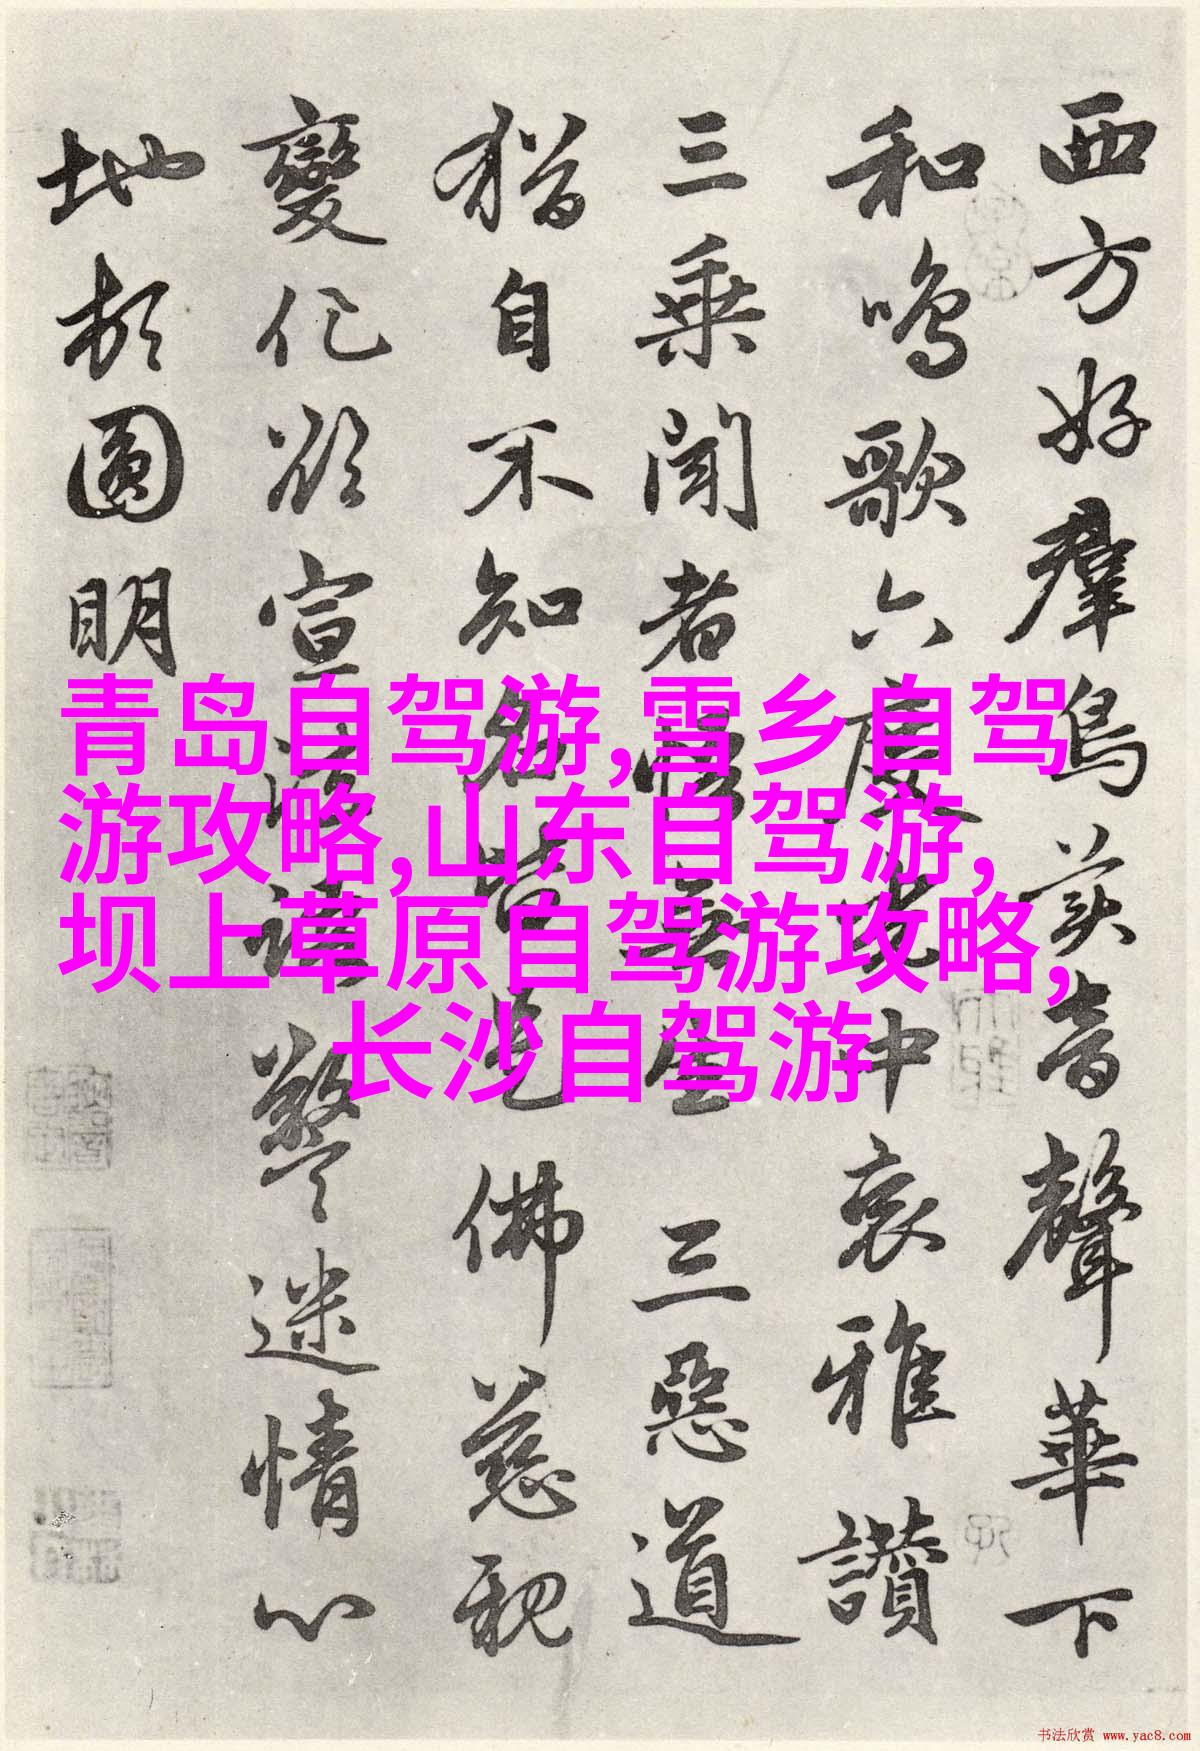 西方好羣鳥美音聲華下
和鳴歌六度光中哀雅讚
三乘聞者悟無生三惡道
猶自不知名皆是佛慈親
變化欲宣法語警迷情心
地頓圓明
青岛自驾游,雪乡自驾
游攻略,山东自驾游,
坝上草原自驾游攻略,
长沙自驾游
书法欣赏 www.yac8.com